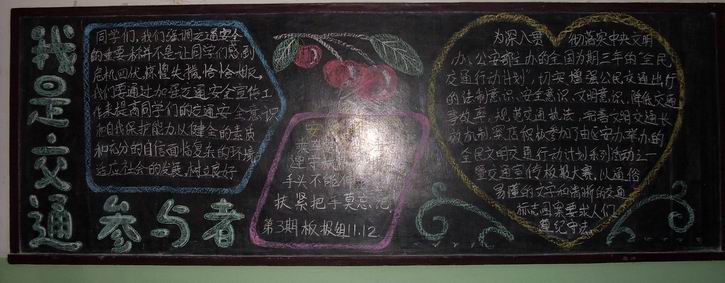 我是交通
参与者
同学们,我们强调交通安全
的重要标并不是让同学们感到
危机四伏,惊惶失措,恰恰相反,
我们要通过加强交通安全宣传工
作来提高同学们的交通安全意识
和自我保护能力,以健全的素质
和充分的自信面临复杂的环境
适应社会的发展,树立良好
安
乘
逆
手头不能
扶紧把手莫忘记
第3期板报组11.12
为深入贯彻落实中央文明
办、公安部主办的全国为期三年的"全民
交通行动计划",切实增强公民交通出行
的法制意识、安全意识、文明意识,降低交通
事故率,规范交通执法,完善文明交通长
动方制,
全民文明交通行动计划系列活动之一
暨交通宣传板报大赛,以通俗
易懂的文字和清晰的交通
标志图案要求人们
遵纪守法。